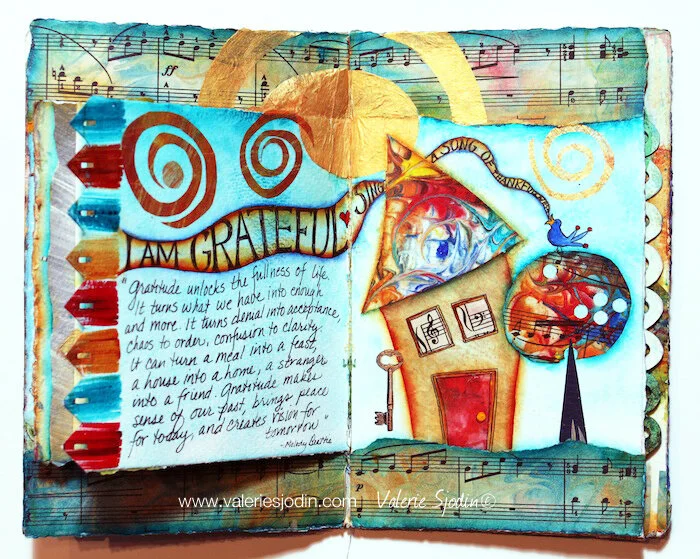 ff
I AM GRATEFUL
SING
A SONG OF THANKFULNESS
"Gratitude unlocks the fullness of life.
It turns what we have into enough
and more. It turns denial into acceptance,
chaos to order, confusion to clarity.
It can turn a meal into a feast,
a house into a home, a stranger
into a friend. Gratitude makes
sense of our past, brings peace
for today, and creates vision for
tomorrow"
~Melody Beattie
www.valeriesjodin.com Valerie Sjodin©